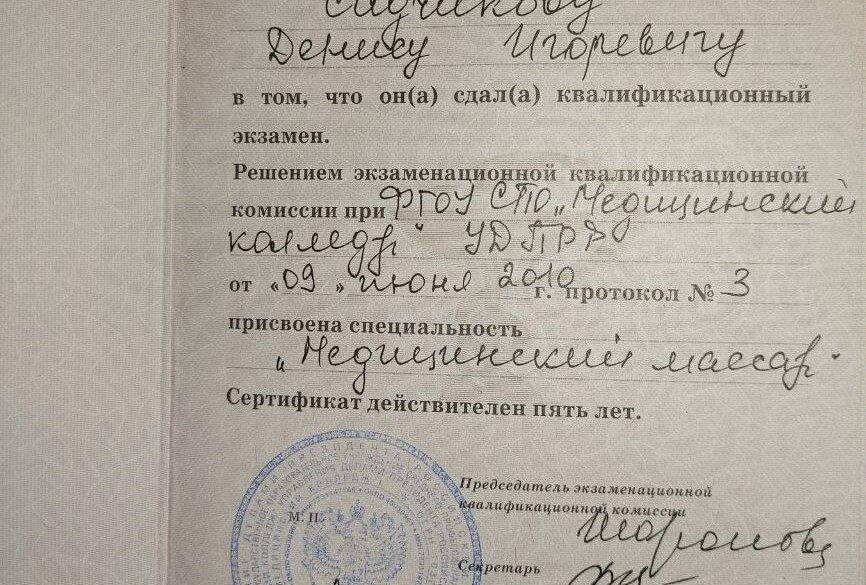 Денису Игоревичу
в том, что он(а) сдал(а) квалификационный
экзамен.
Решением экзаменационной квалификационной
комиссии при ФГОУ СПО „Медицинский
колледж" УДП РФ
от «09 » июня 2010 г. протокол № 3
присвоена специальность
„Медицинский массаж"
Сертификат действителен пять лет.
Председатель экзаменационной
квалификационной комиссии
М. П.
Секретарь